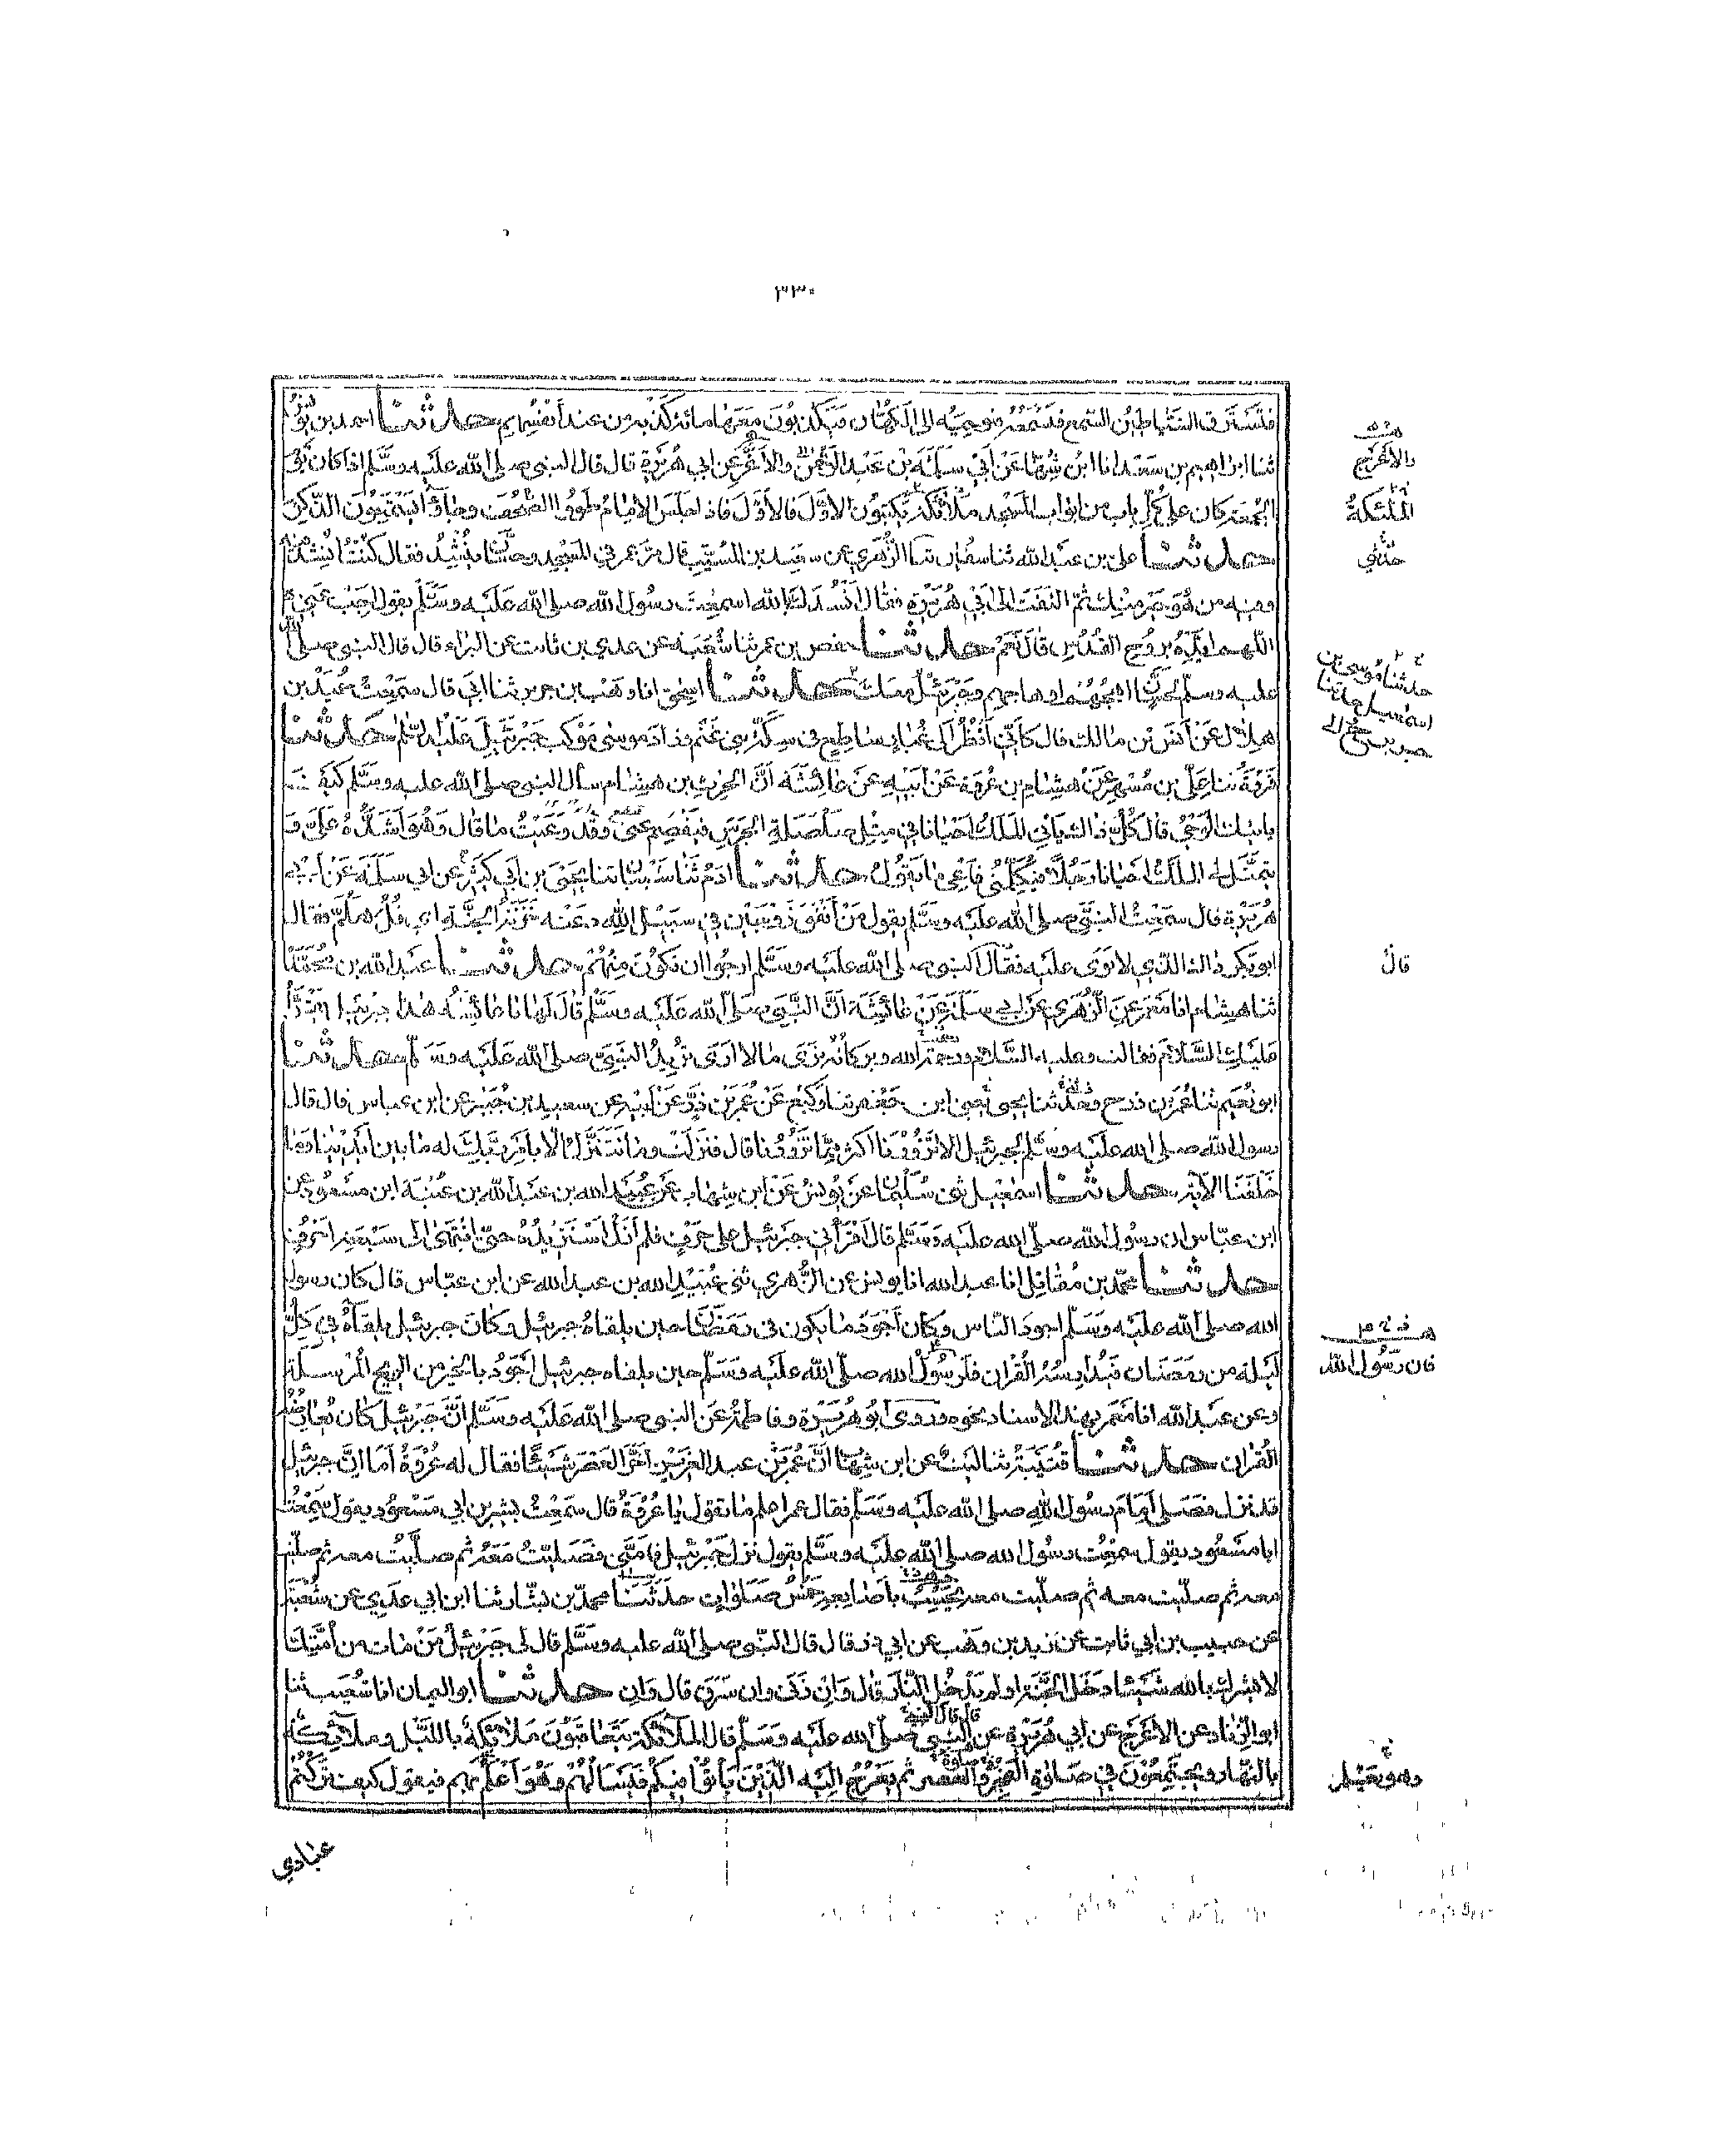 ٣٣٠
فتسترق الشياطين السمع فتسمعه فتوحيه الى الكهان فيكذبون معها مائة كذبة من عند أنفسهم حدثنا احمد بن يونس
ثنا ابراهيم بن سعد انا ابن شهاب عن أبي سلمة بن عبد الرحمن والأغر عن ابي هريرة قال قال النبي صلى الله عليه وسلم اذا كان يوم
الجمعة كان على كل باب من ابواب المسجد ملائكة يكتبون الاول فالأول فاذا جلس الامام طووا الصحف وجاؤا يستمعون الذكر
حدثنا علي بن عبد الله ثنا سفيان ثنا الزهري عن سعيد بن المسيب قال مر عمر في المسجد وحسان ينشد فقال كنت انشد
وفيه من هو خير منك ثم التفت الى ابي هريرة فقال انشدك بالله اسمعت رسول الله صلى الله عليه وسلم يقول اجب عني
اللهم ايده بروح القدس قال نعم حدثنا حفص بن عمر ثنا شعبة عن عدي بن ثابت عن البراء قال قال النبي صلى الله
عليه وسلم لحسان اهجهم او هاجهم وجبرئيل معك حدثنا اسحق انا وهب بن جرير ثنا ابي قال سمعت حميد بن
هلال عن أنس بن مالك قال كأني أنظر الى غبار ساطع في سكة بني غنم زاد موسى موكب جبرئيل عليه السلم حدثنا
فروة ثنا علي بن مسهر عن هشام بن عروة عن أبيه عن عائشة أن الحرث بن هشام سأل النبي صلى الله عليه وسلم كيف
ياتيك الوحي قال كل ذاك ياتي الملك احيانا في مثل صلصلة الجرس فيفصم عني وقد وعيت ما قال وهو أشده علي و
يتمثل لي الملك احيانا رجلا فيكلمني فاعي ما يقول حدثنا ادم ثنا شيبان ثنا يحيى بن ابي كثير عن ابي سلمة عن ابي
هريرة قال سمعت النبي صلى الله عليه وسلم يقول من أنفق زوجين في سبيل الله دعته خزنة الجنة اي فل هلم فقال
ابو بكر ذاك الذي لا توى عليه فقال النبي صلى الله عليه وسلم ارجوا ان تكون منهم حدثنا عبد الله بن محمد
ثنا هشام انا معمر عن الزهري عن ابي سلمة عن عائشة أن النبي صلى الله عليه وسلم قال لها يا عائشة هذا جبرئيل يقرأ
عليك السلام فقالت وعليه السلام ورحمة الله وبركاته ترى مالا ارى تريد النبي صلى الله عليه وسلم حدثنا
ابو نعيم ثنا عمر بن ذر ح وحدثنا يحيى بن جعفر ثنا وكيع عن عمر بن ذر عن أبيه عن سعيد بن جبير عن ابن عباس قال قال
رسول الله صلى الله عليه وسلم لجبرئيل الا تزورنا أكثر مما تزورنا قال فنزلت وما نتنزل الا بامر ربك له ما بين أيدينا وما
خلفنا الآية حدثنا اسمعيل ثنى سليمان عن يونس عن ابن شهاب عن عبيد الله بن عبد الله بن عتبة ابن مسعود عن
ابن عباس ان رسول الله صلى الله عليه وسلم قال اقرأني جبرئيل على حرف فلم أزل أستزيده حتى انتهى الى سبعة احرف
حدثنا محمد بن مقاتل انا عبد الله انا يونس عن الزهري ثنى عبيد الله بن عبد الله عن ابن عباس قال كان رسول
الله صلى الله عليه وسلم اجود الناس وكان أجود ما يكون في رمضان حين يلقاه جبرئيل وكان جبرئيل يلقاه في كل
ليلة من رمضان فيدارسه القرآن فلرسول الله صلى الله عليه وسلم حين يلقاه جبرئيل اجود بالخير من الريح المرسلة
وعن عبد الله انا معمر بهذا الاسناد نحوه وروى أبو هريرة وفاطمة عن النبي صلى الله عليه وسلم ان جبرئيل كان يعارضه
القران حدثنا قتيبة ثنا ليث عن ابن شهاب أن عمر بن عبد العزيز أخر العصر شيئا فقال له عروة أما ان جبرئيل
قد نزل فصلى أمام رسول الله صلى الله عليه وسلم فقال عمر اعلم ما تقول يا عروة قال سمعت بشير بن ابي مسعود يقول سمعت
ابا مسعود يقول سمعت رسول الله صلى الله عليه وسلم يقول نزل جبرئيل فأمني فصليت معه ثم صليت معه ثم صليت
معه ثم صليت معه ثم صليت معه يحسب باصابعه خمس صلوات حدثنا محمد بن بشار ثنا ابن ابي عدي عن شعبة
عن حبيب بن ابي ثابت عن زيد بن وهب عن ابي ذر قال قال النبي صلى الله عليه وسلم قال لي جبرئيل من مات من أمتك
لا يشرك بالله شيئا دخل الجنة او لم يدخل النار قال وان زنى وان سرق قال وان حدثنا ابو اليمان انا شعيب ثنا
ابو الزناد عن الاعرج عن ابي هريرة عن النبي صلى الله عليه وسلم قال الملائكة يتعاقبون ملائكة بالليل وملائكة
بالنهار ويجتمعون في صلوة الفجر والعصر ثم يعرج اليه الذين باتوا فيكم فيسألهم وهو أعلم بهم فيقول كيف تركتم
عبادي
والاعرج
الملئكة
حدثني
حدثنا موسى بن
اسمعيل حدثنا
جرير
قال
فان رسول الله